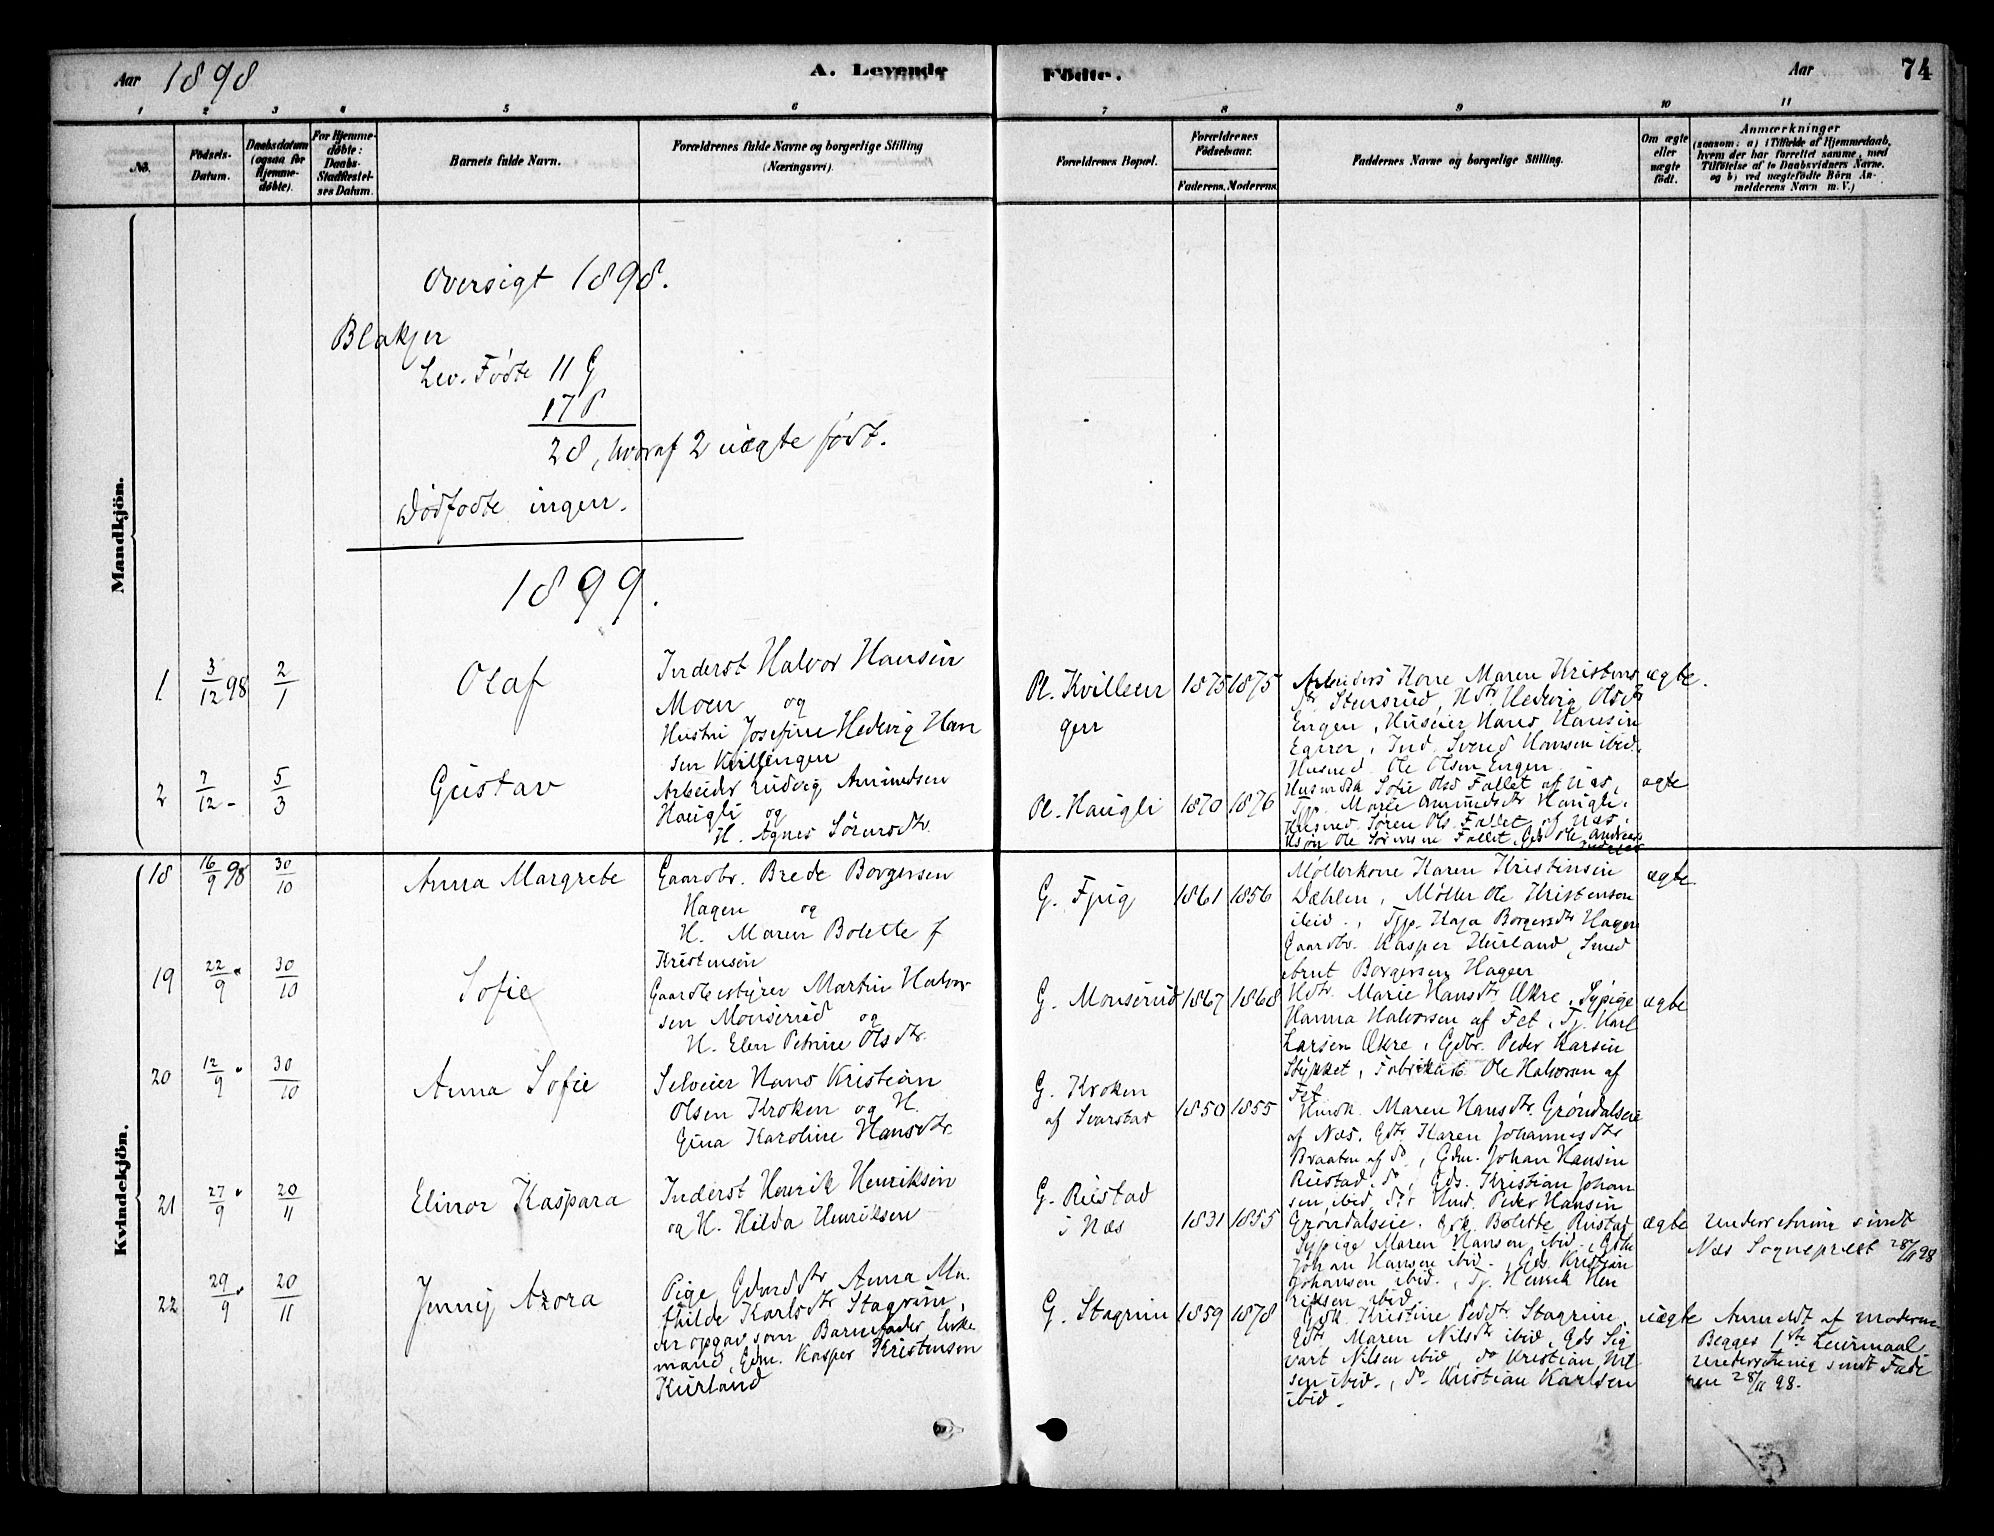 Aar 1898
A. Levende
Födte.
Aar
74
1 2 3 4 5 6 7 8 9 10 11
No.
Födsels-
Datum.
Daabsdatum
(ogsaa for
Hjemme-
døbte).
For Hjemme-
døbte:
Daabs-
Stadfæstel-
ses Datum.
Barnets fulde Navn.
Forældrenes fulde Navne og borgerlige Stilling
(Næringsvei).
Forældrenes Bopæl.
Forældrenes
Fødselsaar.
Faderens. Moderens.
Faddernes Navne og borgerlige Stilling.
Om ægte
eller
uægte
født.
Anmærkninger
(saasom: a) i Tilfælde af Hjemmedaab,
hvem der har forrettet samme, med
Tilføielse af to Daabsvidners Navne.
og b) ved uægtefødte Børn An-
melderens Navn m. V.)
Mandkjön.
Oversigt 1898.
Blakjer
Lev. Fødte 11 G
17 P
28, hvoraf 2 uægte født.
Dødfødte ingen.
1899.
1 3/12 98 2/1 Olaf
Inderst Halvor Hansen
Moen og
Hustru Josefine Hedvig Han
sen Kvillingen
Pl. Kvillen
gen
1875 1875
Arbeiders Kone Maren Kristens
dtr Stensrud, Hdtr Hedvig Olsdtr
Engen, Huseier Hans Hansen
Egner, Ind. Svend Hansen ibid.
Husmd. Ole Olsen Engen
ægte.
2 7/12 - 5/3 Gustav
Arbeider Ludvig Amundsen
Haugli og
H. Agnes Sørensdtr.
Pl. Haugli 1870 1876
Husmdsk Sofie Olsd Fallet af Næs,
Tjp. Marie Amundsdtr Haugli,
Husmd. Søren Ols. Fallet af Næs,
Hsøn Ole Sørensen Fallet, Gds Ole Andreas
ægte
Kvindekjön.
18 16/9 98 30/10 Anna Margrete
Gaardbr. Brede Borgersen
Hagen og
H. Maren Bolette f
Kristensen
G. Fjuig 1861 1856
Møllerkone Karen Kristensen
Dæhlen, Møller Ole Kristensen
ibid., Tjp. Kaja Borgersdtr Hagen
Gaardbr. Kasper Kurland, Smed
Arnt Borgersen Hagen
ægte
19 22/9 " 30/10 Sofie
Gaardbestyrer Martin Halvor
sen Monserud og
H. Elen Petrine Olsdtr.
G. Monserud 1867 1868
Hdtr. Marie Hansdtr Økre, Sypige
Hanna Halvorsen af Fet, Tj. Karl
Larsen Økre, Gdbr. Peder Larsen
Stykket, Fabrikarb. Ole Halvorsen af
Fet
ægte
20 12/9 " 30/10 Anna Sofie
Selveier Hans Kristian
Olsen Kroken og H.
Gina Karoline Hansdtr.
G. Kroken
af Svarstad
1850 1855
Hmdk. Maren Hansdtr. Grøndalseie
af Næs, Gdtr. Karen Johannesdtr
Braaten af do, Gdm. Johan Hansen
Rustad, do, Gds. Kristian Johan
sen, ibid, do, Hmd. Peder Hansen
Grøndalseie.
21 27/9 " 20/11 Elinor Kaspara
Inderst Henrik Henriksen
og H. Hilda Henriksen
G. Rustad
i Næs
1831 1855
Gdk. Bolette Rustad
Sypige Maren Hansen ibid., Gdbr
Johan Hansen ibid., Gds. Kristian
Johansen ibid., Tj. Henrik Hen
riksen ibid.
ægte
Underretning sendt
Næs Sogneprest 28/11 98
22 29/9 " 20/11 Jenny Azora
Pige, Gdmdsdtr Anna Ma
thilde Karlsdtr Stagrim,
der opgav som Barnefader Enke
mand, Gdm. Kasper Kristensen
Kurland
G. Stagrim 1859 1878
Gdk. Kristine Pedsdtr. Stagrim,
Gdtr Maren Nilsdtr ibid, Gds Sig
vart Nilsen ibid, do Kristian Nil
sen ibid., do Kristian Karlsen
ibid.
uægte
Anmeldt af moderen
Begges 1ste Leiermaal
Underretning sendt Fade
ren 28/11 98.